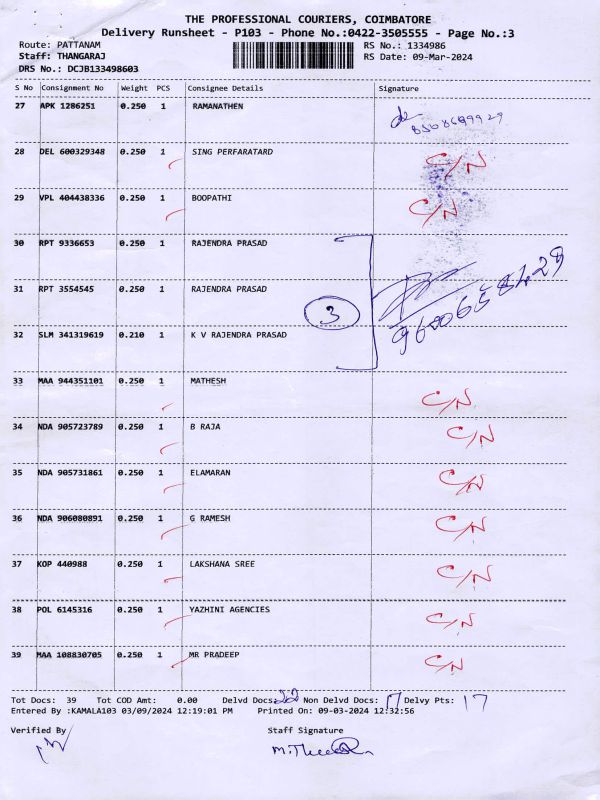 THE PROFESSIONAL COURIERS, COIMBATORE
Delivery Runsheet - P103 - Phone No.:0422-3505555 - Page No.:3
Route: PATTANAM RS No.: 1334986
Staff: THANGARAJ RS Date: 09-Mar-2024
DRS No.: DCJB133498603
S No Consignment No Weight PCS Consignee Details Signature
27 APK 1286251 0.250 1 RAMANATHEN
28 DEL 600329348 0.250 1 SING PERFARATARD C/N
29 VPL 404438336 0.250 1 BOOPATHI C/N
30 RPT 9336653 0.250 1 RAJENDRA PRASAD
31 RPT 3554545 0.250 1 RAJENDRA PRASAD 3
32 SLM 341319619 0.210 1 K V RAJENDRA PRASAD
33 MAA 944351101 0.250 1 MATHESH C/N
34 NDA 905723789 0.250 1 B RAJA C/N
35 NDA 905731861 0.250 1 ELAMARAN C/N
36 NDA 906080891 0.250 1 G RAMESH C/N
37 KOP 440988 0.250 1 LAKSHANA SREE C/N
38 POL 6145316 0.250 1 YAZHINI AGENCIES C/N
39 MAA 108830705 0.250 1 MR PRADEEP C/N
Tot Docs: 39 Tot COD Amt: 0.00 Delvd Docs: 22 Non Delvd Docs: 17 Delvy Pts: 17
Entered By :KAMALA103 03/09/2024 12:19:01 PM Printed On: 09-03-2024 12:32:56
Verified By Staff Signature